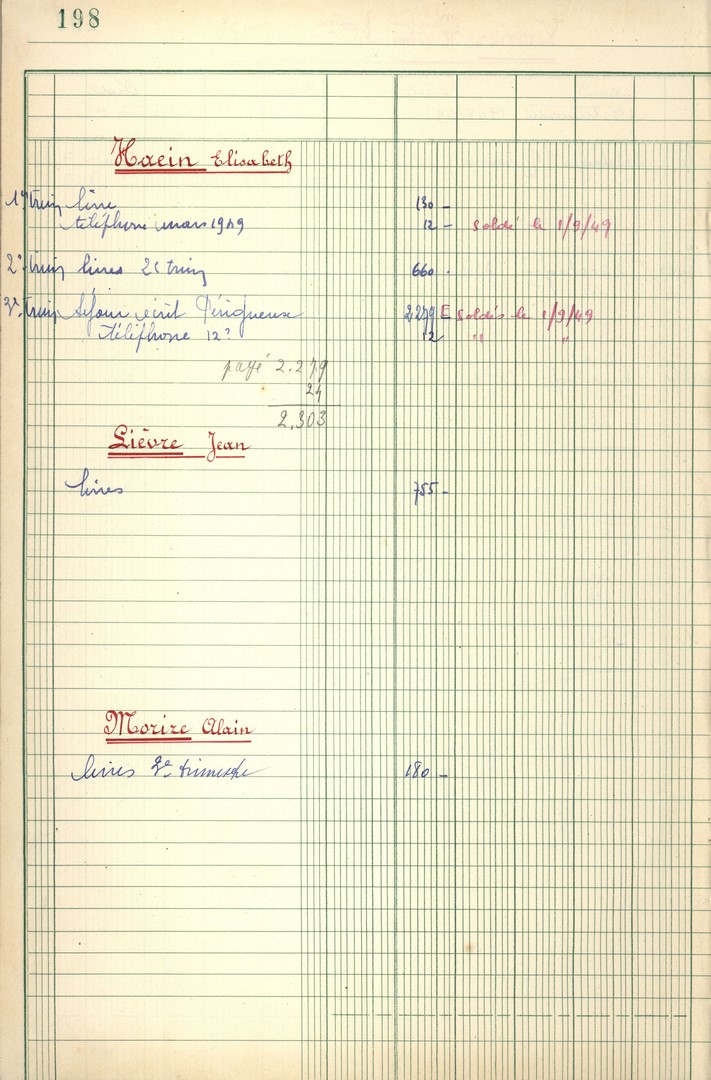 198
Haein Elisabeth
1er trim livre 130 -
téléphone mars 1949 12 - soldé le 1/9/49
2e trim livres 2e trim 660 -
3e trim Séjour écrit Périgueux 2279 E soldés le 1/9/49
téléphone 12? 12 " "
payé 2.279
24
2.303
Lièvre Jean
livres 755 -
Morize Alain
livres 2e trimestre 180 -